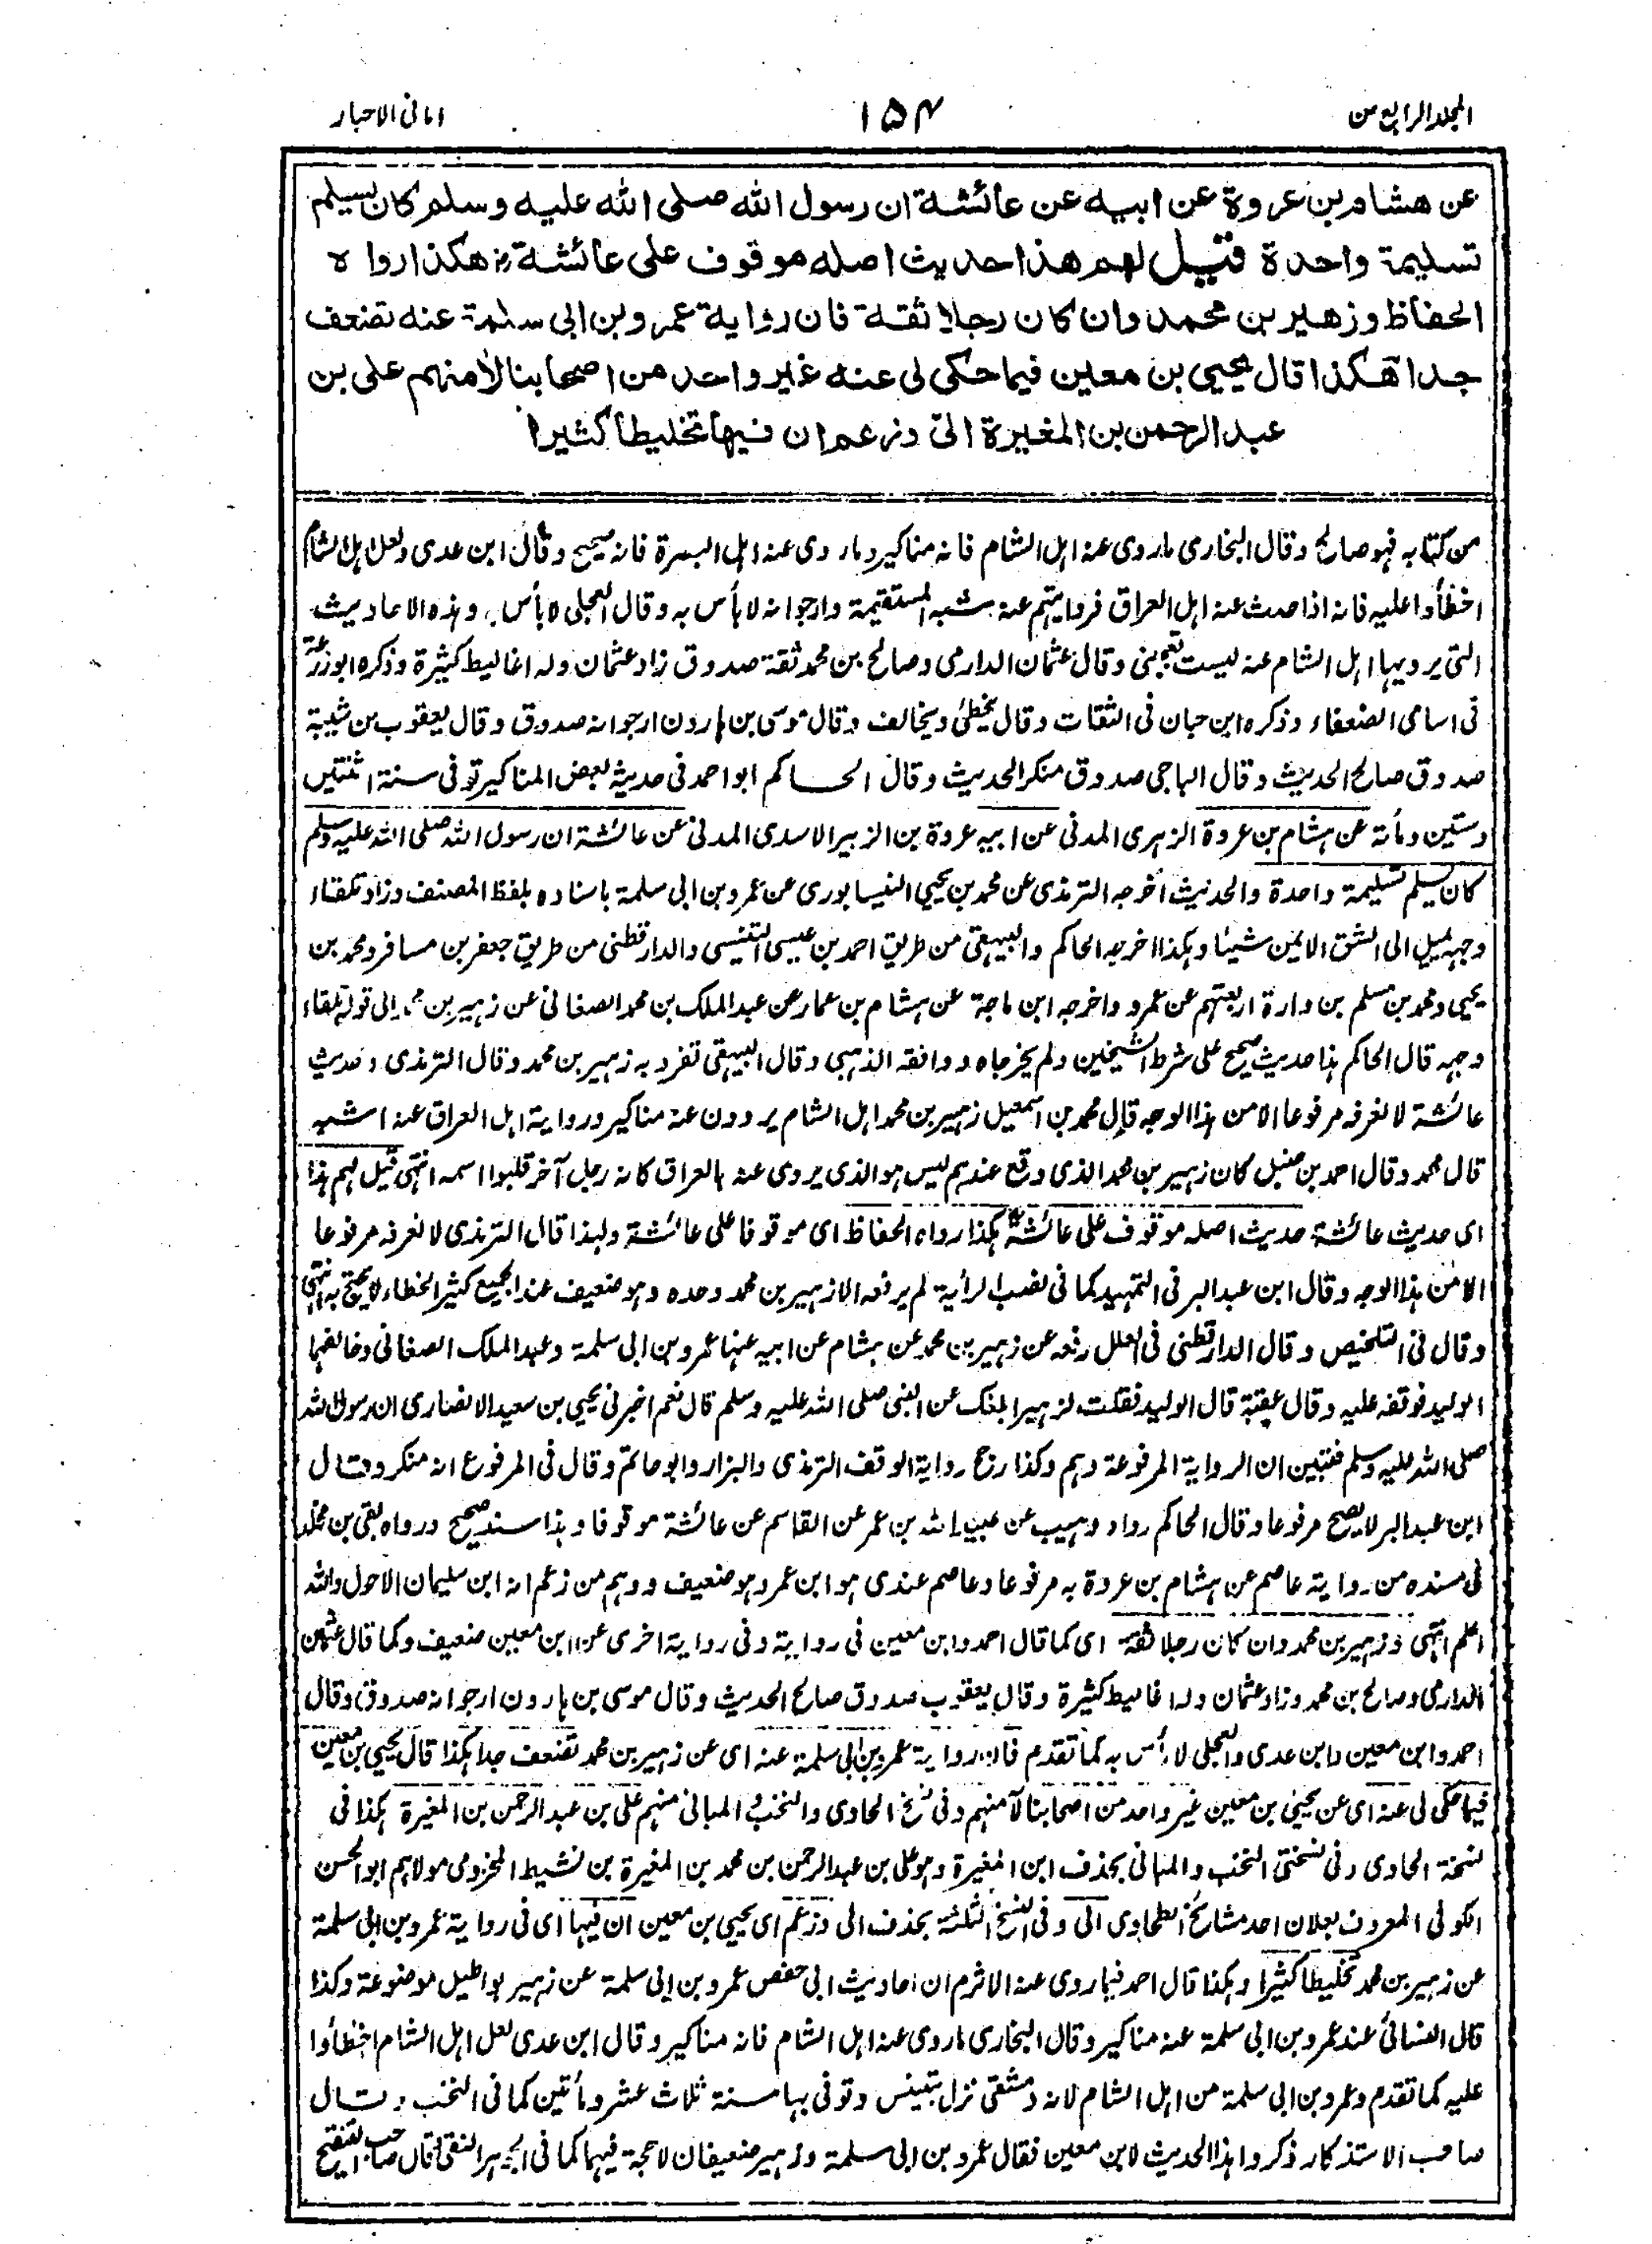 المجلد الرابع من ۱۵۴ امانی الاحبار
عن هشام بن عروة عن ابيه عن عائشة ان رسول الله صلى الله عليه وسلم كان يسلم
تسليمة واحدة قيل لهم هذا حديث اصله موقوف على عائشة رض هكذا رواه
الحفاظ وزهير بن محمد وان كان رجلا ثقة فان رواية عمرو بن ابى سلمة عنه تضعف
جدا هكذا قال يحيى بن معين فيما حكى لى عنه غير واحد من اصحابنا لأ منهم على بن
عبد الرحمن بن المغيرة الى وزعم ان فيها تخليطا كثيرا
من كتابه فهو صالح وقال البخارى ماروى عنه اهل الشام فانه مناكير وماروى عنه اهل البصرة فانه صحيح وقال ابن عدى ولعل اهل الشام
اخطأوا عليه فانه اذا حدث عنه اهل العراق فروايتهم عنه شبه المستقيمة وارجوانه لا بأس به وقال العجلى لا بأس به وهذه الاحاديث
التى يرويها اهل الشام عنه ليست تعجبنى وقال عثمان الدارمى وصالح بن محمد ثقة صدوق زاد عثمان وله اغاليط كثيرة وذكره ابوزرعة
فى اسامى الضعفاء وذكره ابن حبان فى الثقات وقال يخطئ ويخالف وقال موسى بن هارون ارجوانه صدوق وقال يعقوب بن شيبة
صدوق صالح الحديث وقال الباجى صدوق منكر الحديث وقال الحاكم ابو احمد فى حديثه بعض المناكير توفى سنة اثنتين
وستين ومأته عن هشام بن عروة الزهرى المدنى عن ابيه عروة بن الزبير الاسدى المدنى عن عائشة ان رسول الله صلى الله عليه وسلم
كان يسلم تسليمة واحدة والحديث اخرجه الترمذى عن محمد بن يحيى النيسابورى عن عمرو بن ابى سلمة باسناده بلفظ المصنف وزاد تلقاء
وجهه يميل الى الشق الايمن شيئا وهكذا اخرجه الحاكم والبيهقى من طريق احمد بن عيسى التنيسى والدارقطنى من طريق جعفر بن مسافر ومحمد بن
يحيى ومحمد بن مسلم بن دارة اربعتهم عن عمرو واخرجه ابن ماجة عن هشام بن عمار عن عبد الملك بن محمد الصغانى عن زهير بن محمد الى قوله تلقاء
وجهه قال الحاكم هذا حديث صحيح على شرط الشيخين ولم يخرجاه ووافقه الذهبى وقال البيهقى تفرد به زهير بن محمد وقال الترمذى وحديث
عائشة لا نعرفه مرفوعا الا من هذا الوجه قال محمد بن اسمعيل زهير بن محمد اهل الشام يروون عنه مناكير ورواية اهل العراق عنه اشبه
قال محمد وقال احمد بن حنبل كان زهير بن محمد الذى وقع عندهم ليس هو الذى يروى عنه بالعراق كانه رجل آخر قلبوا اسمه انتهى قيل لهم هذا
اى حديث عائشة حديث اصله موقوف على عائشة هكذا رواه الحفاظ اى موقوفا على عائشة ولهذا قال الترمذى لا نعرفه مرفوعا
الا من هذا الوجه وقال ابن عبد البر فى التمهيد كما فى نصب الرأية لم يرفعه الا زهير بن محمد وحده وهو ضعيف عند الجميع كثير الخطاء لا يحتج به انتهى
وقال فى التلخيص وقال الدارقطنى فى العلل رفعه عن زهير بن محمد عن هشام عن ابيه عنها عمرو بن ابى سلمة وعبد الملك الصغانى وخالفهما
الوليد فوقفه عليه وقال عقبة قال الوليد فقلت لزهير ابلغك عن النبى صلى الله عليه وسلم قال نعم اخبرنى يحيى بن سعيد الانصارى ان رسول الله
صلى الله عليه وسلم فتبين ان الرواية المرفوعة وهم وكذا رجح رواية الوقف الترمذى والبزار وابو حاتم وقال فى المرفوع انه منكر وقال
ابن عبد البر لا يصح مرفوعا وقال الحاكم رواه وهيب عن عبيد الله بن عمر عن القاسم عن عائشة موقوفا وهذا سند صحيح ورواه بقى بن مخلد
فى مسنده من رواية عاصم عن هشام بن عروة به مرفوعا وعاصم عندى هو ابن عمر وهو ضعيف ووهم من زعم انه ابن سليمان الاحول والله
اعلم انتهى وزهير بن محمد وان كان رجلا ثقة اى كما قال احمد وابن معين فى رواية وفى رواية اخرى عن ابن معين ضعيف وكما قال عثمان
الدارمى وصالح بن محمد وزاد عثمان وله اغاليط كثيرة وقال يعقوب صدوق صالح الحديث وقال موسى بن هارون ارجوانه صدوق وقال
احمد وابن معين وابن عدى والعجلى لا بأس به كما تقدم فان رواية عمرو بن ابى سلمة عنه اى عن زهير بن محمد تضعف جدا هكذا قال يحيى بن معين
فيما حكى لى عنه اى عن يحيى بن معين غير واحد من اصحابنا لآ منهم وفى نسخ الحاوى والنخب و المبانى منهم على بن عبد الرحمن بن المغيرة هكذا فى
نسخة الحاوى وفى نسختى النخب والمبانى بحذف ابن المغيرة وهو على بن عبد الرحمن بن محمد بن المغيرة بن نشيط المخزومى مولاهم ابو الحسن
الكوفى المعروف بعلان احد مشائخ الطحاوى الى وفى النسخ الثلثة بحذف الى وزعم اى يحيى بن معين ان فيها اى فى رواية عمرو بن ابى سلمة
عن زهير بن محمد تخليطا كثيرا وهكذا قال احمد فيما روى عنه الاثرم ان احاديث ابى حفص عمرو بن ابى سلمة عن زهير بواطيل موضوعة وكذا
قال النسائى عند عمرو بن ابى سلمة عنه مناكير وقال البخارى ماروى عنه اهل الشام فانه مناكير وقال ابن عدى لعل اهل الشام اخطأوا
عليه كما تقدم وعمرو بن ابى سلمة من اهل الشام لانه دمشقى نزل بتنيس وتوفى بها سنة ثلاث عشر ومأتين كما فى النخب وقال
صاحب الاستذكار ذكروا هذا الحديث لابن معين فقال عمرو بن ابى سلمة وزهير ضعيفان لا حجة فيهما كما فى الجوهر النقى قال صاحب التنقيح